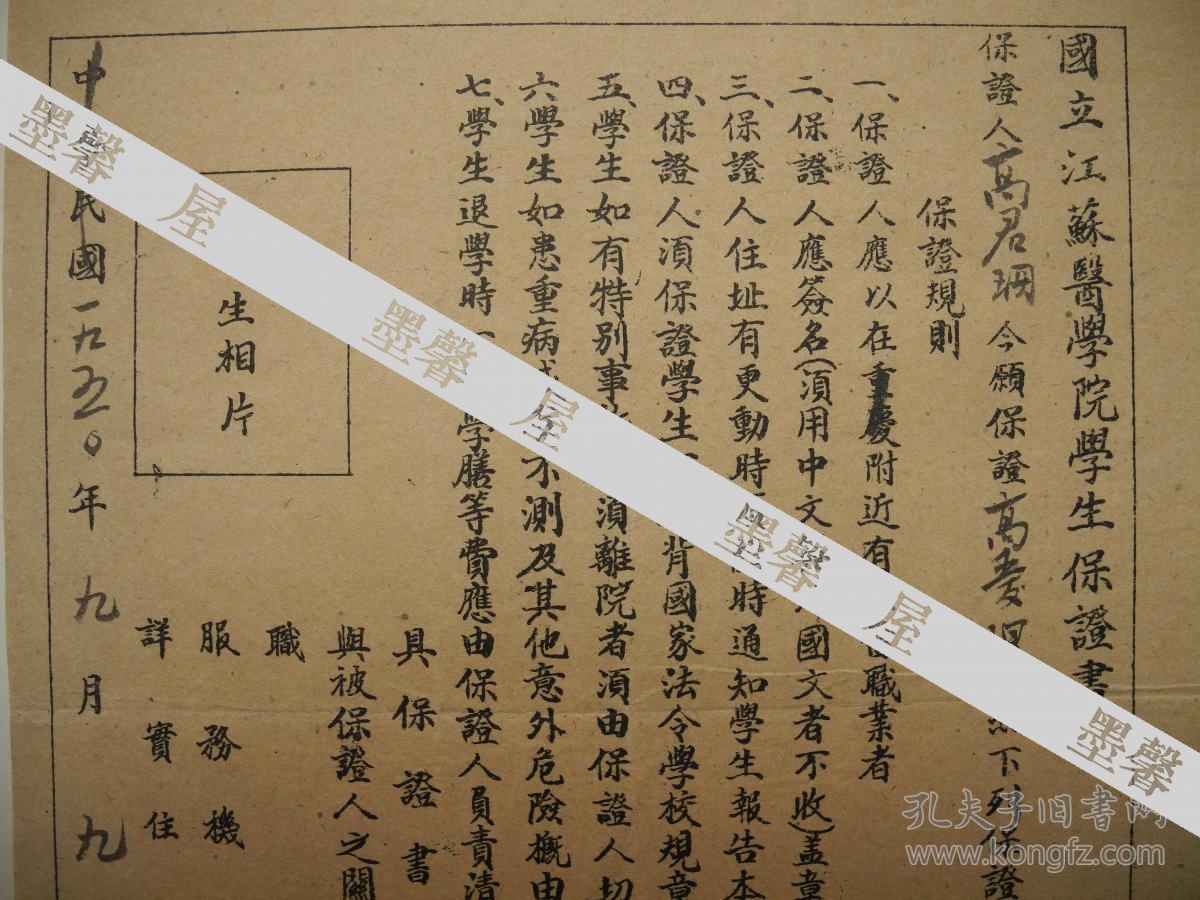 國立江蘇醫學院學生保證書
保證人高君珊今願保證高 下列保證
保證規則
一、保證人應以在重慶附近有 職業者
二、保證人應簽名（須用中文 國文者不收）蓋章
三、保證人住址有更動時 時通知學生報告本
四、保證人須保證學生 背國家法令學校規章
五、學生如有特别事 須離院者須由保證人切
六學生如患重病 不測及其他意外危險概由
七、學生退學時 學膳等費應由保證人負責清
具保證書
與被保證人之關
職
服務機
詳實住
生相片
中 民國一九五〇年九月九
墨馨屋
墨馨屋
墨馨屋
墨馨
孔夫子旧书网
www.kongfz.com